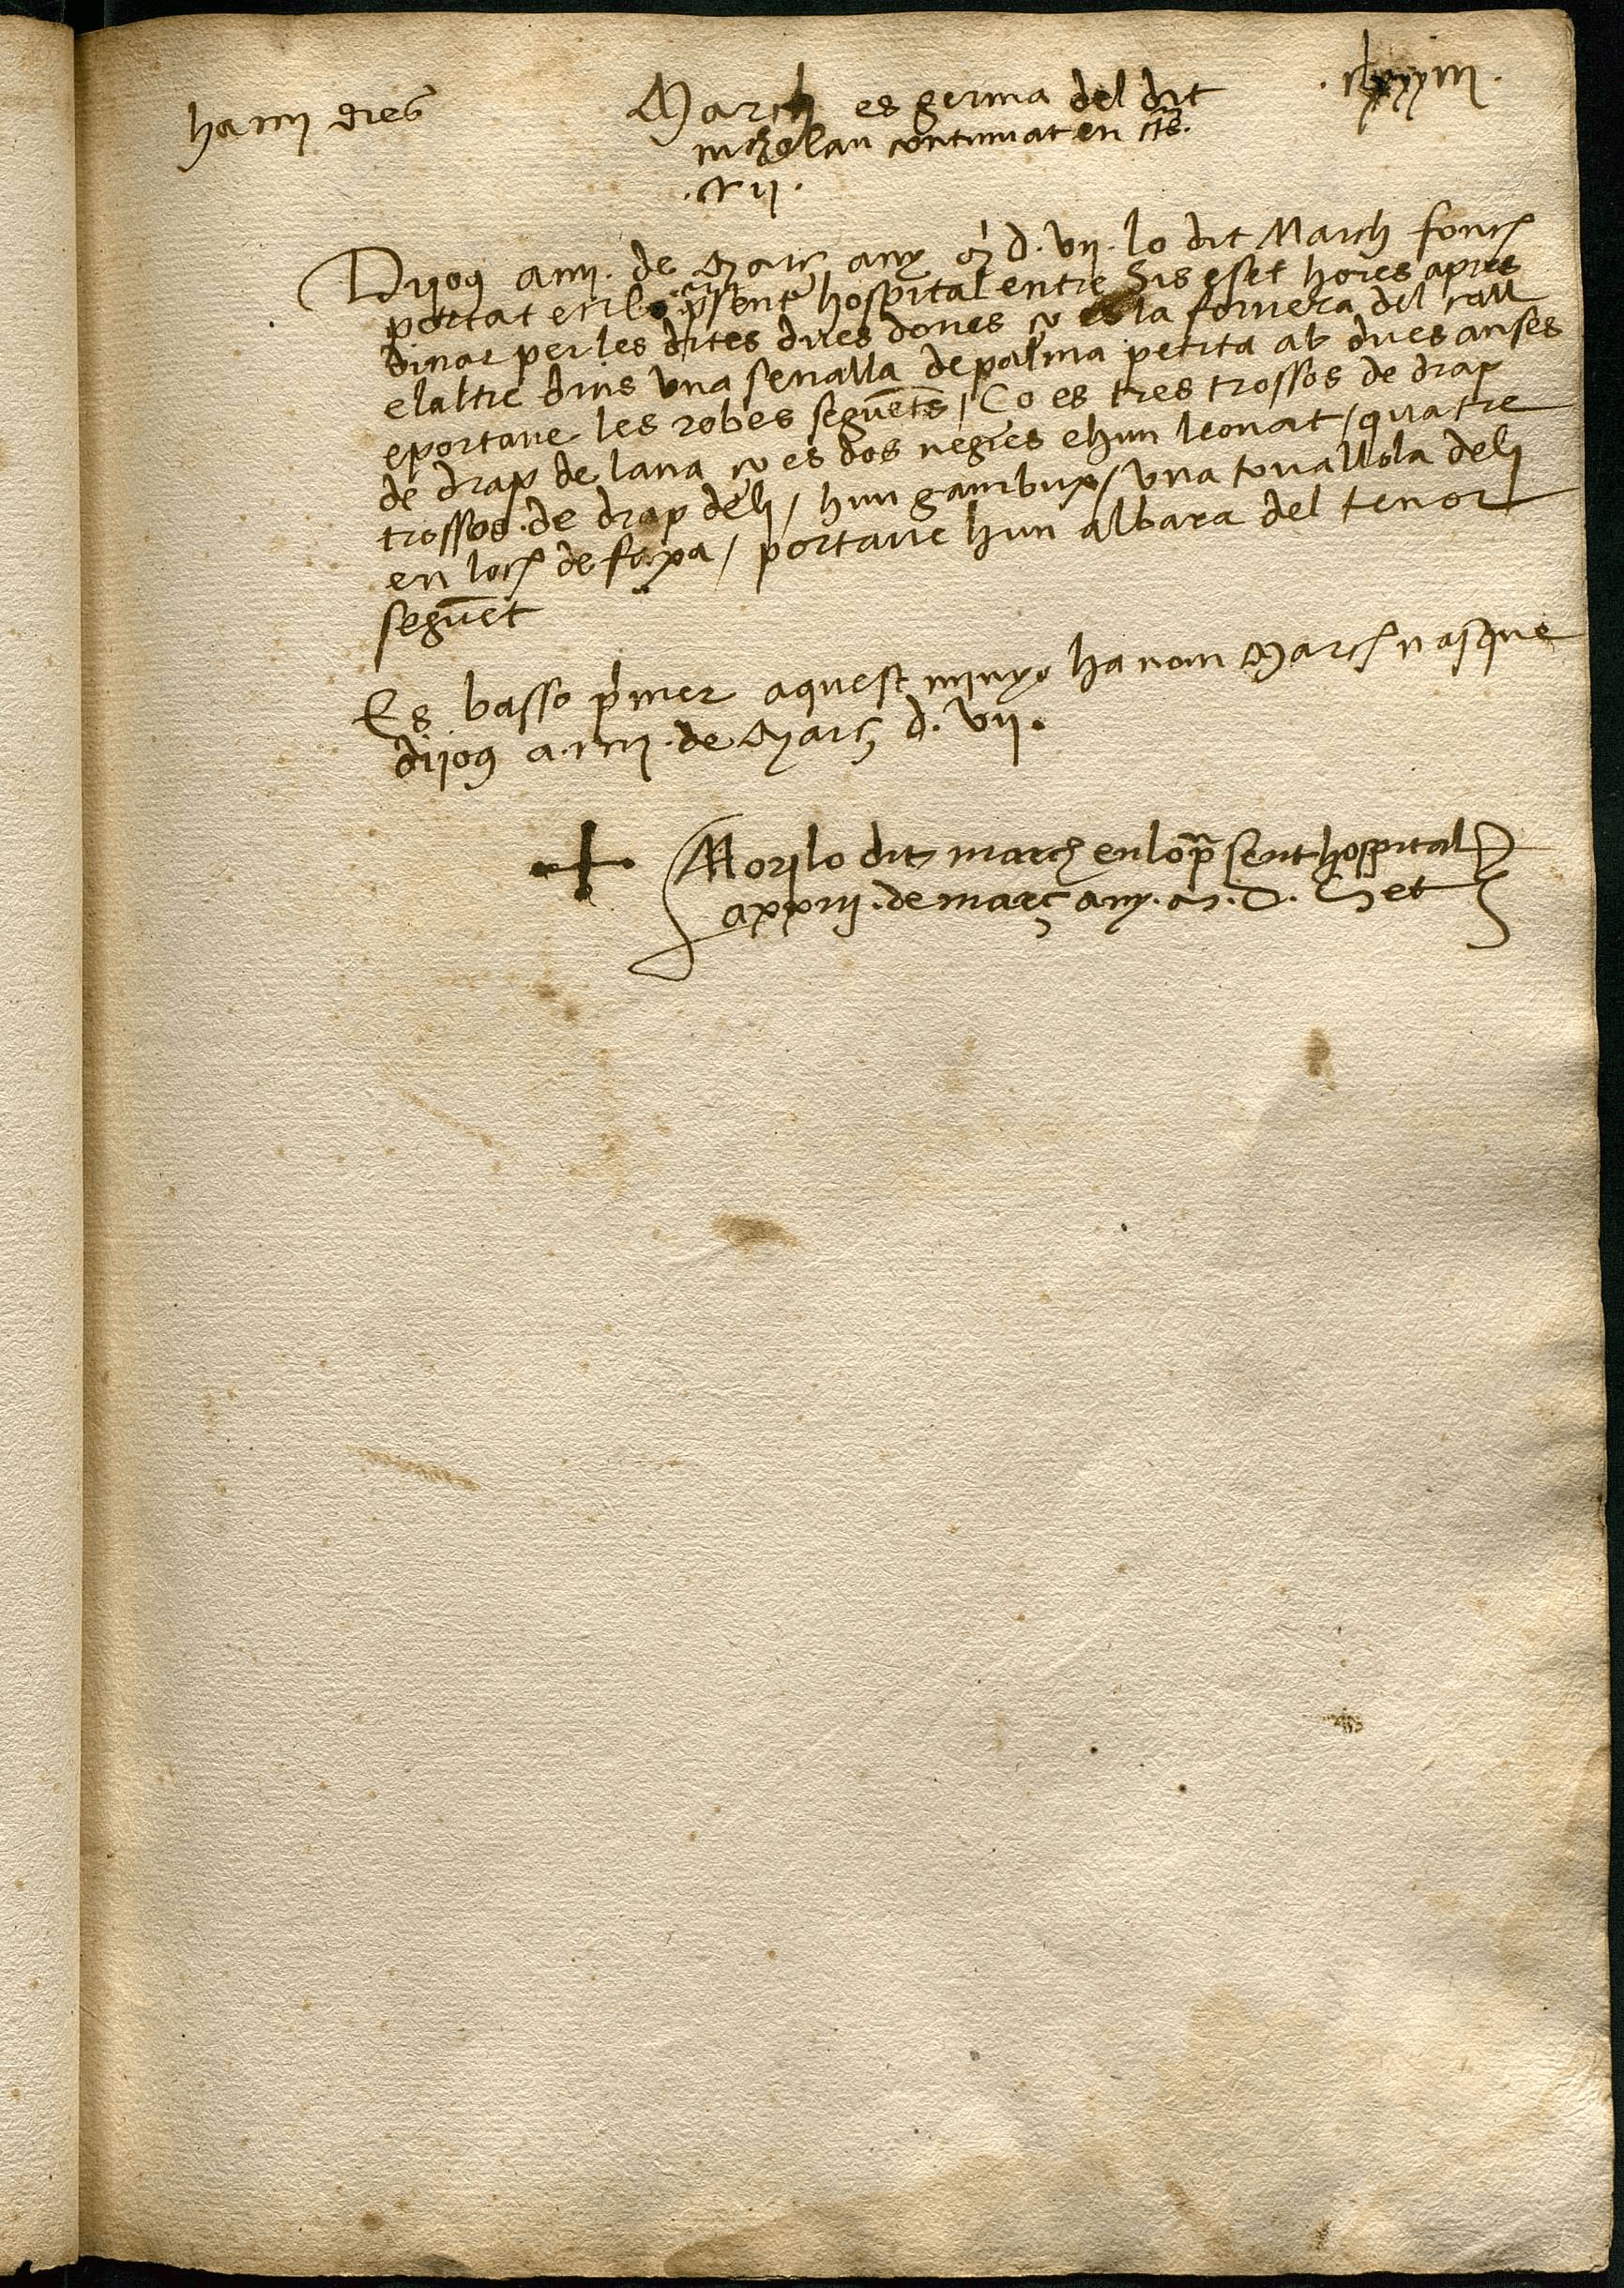 ha iiij dies
March es germa del dit
nicholau continuat en cts.
.Cxij.
Dijous a iiij. de Març any M d. vij. lo dit March fonch
portat en lo psent hospital entre sis e set hores apres
dinar per les dites dues dones ço es la fornera del call
e laltre dins vna senalla de palma petita ab dues anses
e portaue les robes seguets / Co es tres trossos de drap
de drap de lana ço es dos negres e hun leonat / quatre
trossos de drap de li / hun gambux / vna touallola de li
en loch de faxa / portaue hun albara del tenor
seguet
Es basso pmer aquest minyo ha nom March nasque
dijous a .iiij. de Març d. vij.
Mori lo dit march en lo psent hospital
a xxiij .de març any .M. D. Set